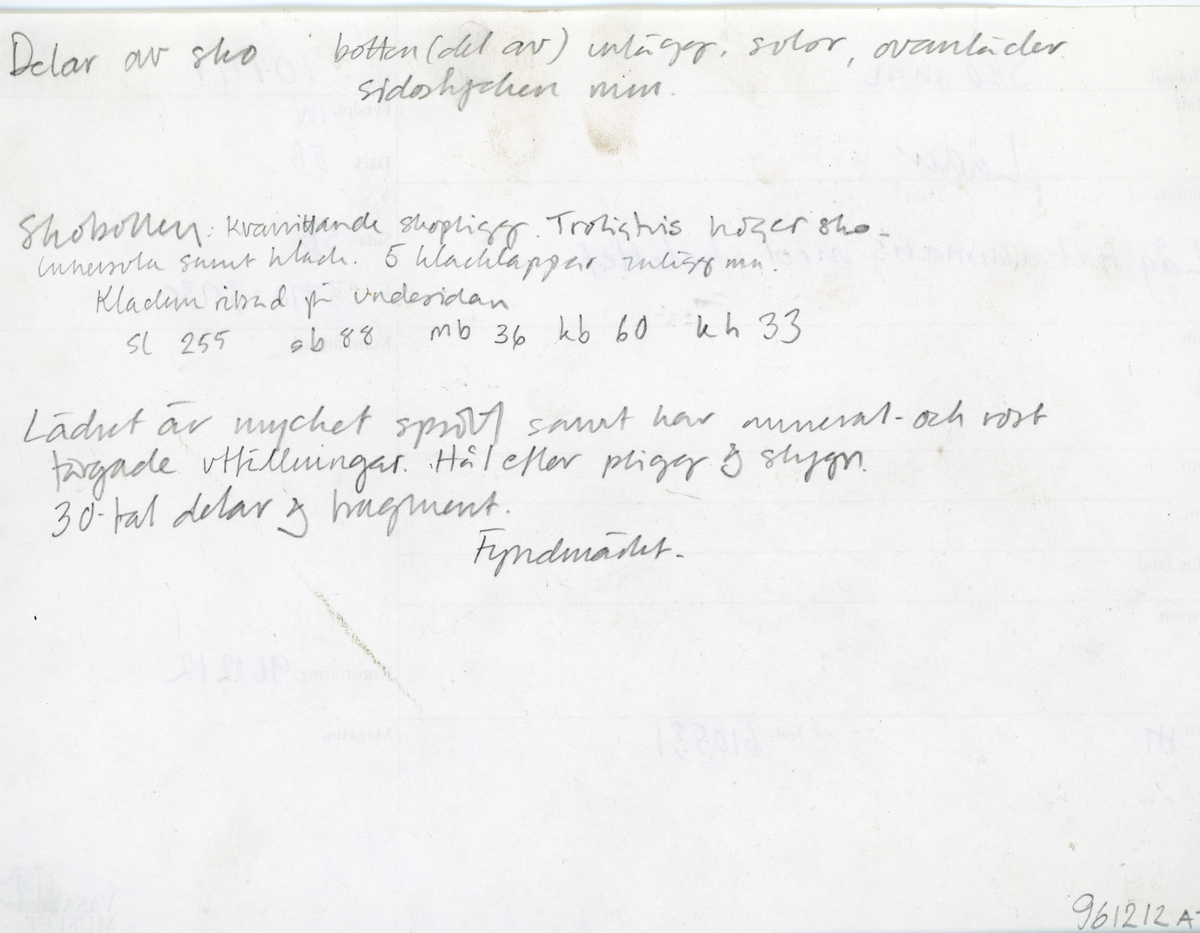 Delar av sko botten (del av) inlägg, sulor, ovanläder
sidostycken mm.
Skobotten: Kvarsittande skopligg. Troligtvis höger sko.
Innersula samt klack. 5 klacklappar inlägg mm.
Klacken ritsad på undersidan
sl 255 sb 88 mb 36 kb 60 kh 33
Lädret är mycket sprött samt har mineral- och rost
färgade utfällningar. Hål efter pligg & stygn.
30-tal delar & fragment.
Fyndmärkt.
961212 A-